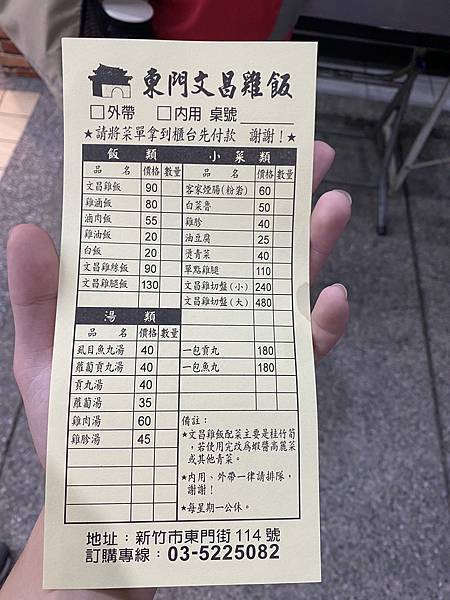 東門文昌雞飯
□外帶 □內用 桌號
★請將菜單拿到櫃台先付款 謝謝！★
飯類
品名 價格 數量
文昌雞飯 90
雞滷飯 80
滷肉飯 55
雞油飯 20
白飯 20
文昌雞絲飯 90
文昌雞腿飯 130
湯類
品名 價格 數量
虱目魚丸湯 40
蘿蔔貢丸湯 40
貢丸湯 40
蘿蔔湯 35
雞肉湯 60
雞胗湯 45
小菜類
品名 價格 數量
客家煙腸(粉嵜) 60
白菜魯 50
雞胗 40
油豆腐 25
燙青菜 40
單點雞腿 110
文昌雞切盤(小) 240
文昌雞切盤(大) 480
一包貢丸 180
一包魚丸 180
備註：
★文昌雞飯配菜主要是桂竹筍，
若使用完改為蝦醬高麗菜
或其他青菜。
★內用、外帶一律請排隊，
謝謝！
★每星期一公休。
地址：新竹市東門街114號
訂購專線：03-5225082